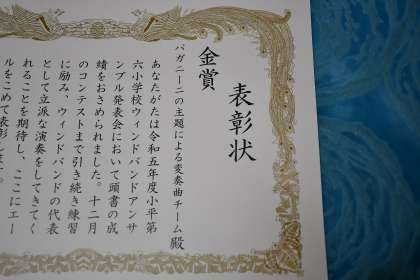 表彰状
金賞
パガニーニの主題による変奏曲チーム殿
あなたがたは令和五年度小平第
六小学校ウィンドバンドアンサ
ンブル発表会において頭書の成
績をおさめられました。十二月
のコンテストまで引き続き練習
に励み、ウィンドバンドの代表
として立派な演奏をしてきてく
れることを期待し、ここにエー
ルをこめて表彰します。